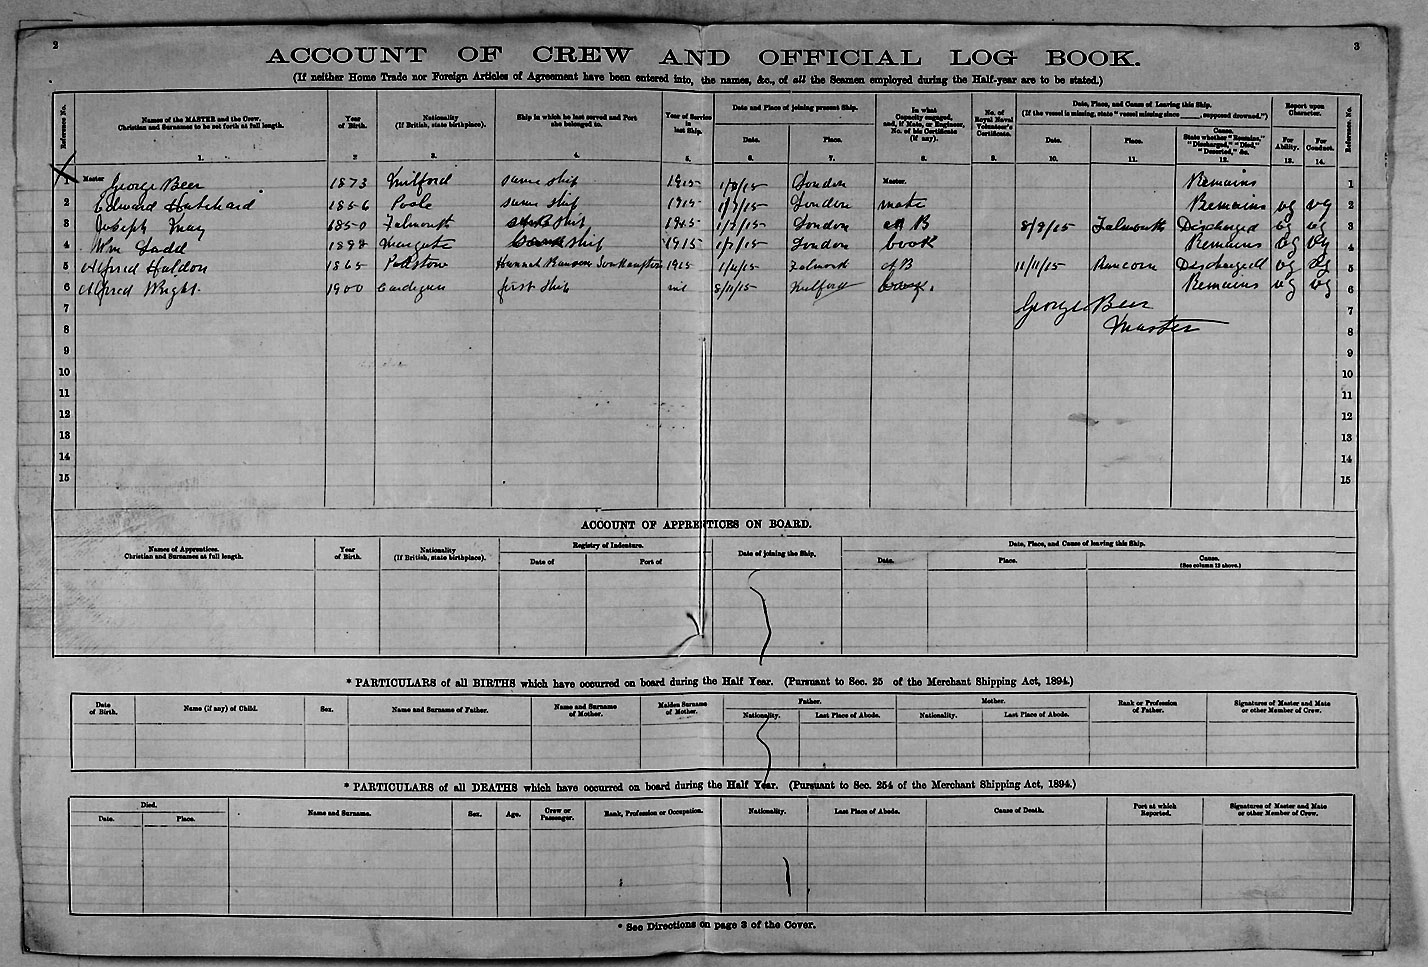 2
3
ACCOUNT OF CREW AND OFFICIAL LOG BOOK.
(If neither Home Trade nor Foreign Articles of Agreement have been entered into, the names, &c., of all the Seamen employed during the Half-year are to be stated.)
Reference No. Names of the MASTER and the Crew. Christian and Surnames to be set forth at full length. Year of Birth. Nationality (If British, state birthplace). Ship in which he last served and Port she belonged to. Year of Service in last Ship. Date and Place of joining present Ship. Date. Place. In what Capacity engaged, and, if Mate, or Engineer, No. of his Certificate (if any). No. of Royal Naval Volunteer's Certificate. Date, Place, and Cause of Leaving this Ship. (If the vessel is missing, state "vessel missing since ____, supposed drowned.") Date. Place. Cause. State whether "Remains," "Discharged," "Died," "Deserted," &c. Report upon Character. For Ability. For Conduct. Reference No.
1. 2 3. 4. 5. 6. 7. 8. 9. 10. 11. 12. 13. 14.
1 Master George Beer 1873 Milford same ship 1915 London Master. Remains 1
2 Edward 1856 Poole same ship 1915 1/7/15 London mate Remains vg vg 2
3 Joseph May 1850 Falmouth ship 1915 1/7/15 London AB 8/9/15 Falmouth Discharged vg vg 3
4 Wm Dadd 1898 Margate ship 1915 1/7/15 London cook Remains vg vg 4
5 Alfred Haldon 1865 Padstow Hannah Southampton 1915 Falmouth AB 11/11/15 Runcorn Discharged vg vg 5
6 Alfred Wright 1900 Cardigan first ship nil 8/11/15 Remains vg vg 6
7 George Beer 7
8 Master 8
9 9
10 10
11 11
12 12
13 13
14 14
15 15
ACCOUNT OF APPRENTICES ON BOARD.
Names of Apprentices. Christian and Surnames at full length. Year of Birth. Nationality (If British, state birthplace). Registry of Indenture. Date of Port of Date of joining the Ship. Date, Place, and Cause of leaving this Ship. Date. Place. Cause. (See column 12 above.)
* PARTICULARS of all BIRTHS which have occurred on board during the Half Year. (Pursuant to Sec. 25 of the Merchant Shipping Act, 1894.)
Date of Birth. Name (if any) of Child. Sex. Name and Surname of Father. Name and Surname of Mother. Maiden Surname of Mother. Father. Nationality. Last Place of Abode. Mother. Nationality. Last Place of Abode. Rank or Profession of Father. Signatures of Master and Mate or other Member of Crew.
* PARTICULARS of all DEATHS which have occurred on board during the Half Year. (Pursuant to Sec. 254 of the Merchant Shipping Act, 1894.)
Died. Date. Place. Name and Surname. Sex. Age. Crew or Passenger. Rank, Profession or Occupation. Nationality. Last Place of Abode. Cause of Death. Port at which Reported. Signatures of Master and Mate or other Member of Crew.
* See Directions on page 3 of the Cover.